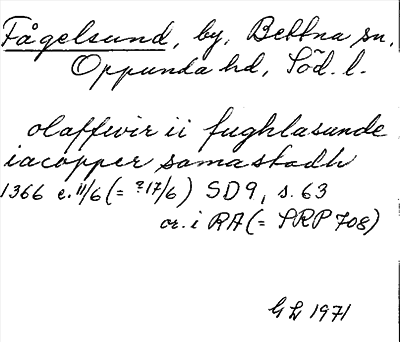 Fågelsund, by, Bettna sn,
Oppunda hd, Söd. l.
olaffwir ii fughlasunde
iacopper samastadh
1366 e. 11/6 (= ?17/6) SD9, s. 63
or. i RA (= SRP 708)
GL 1971